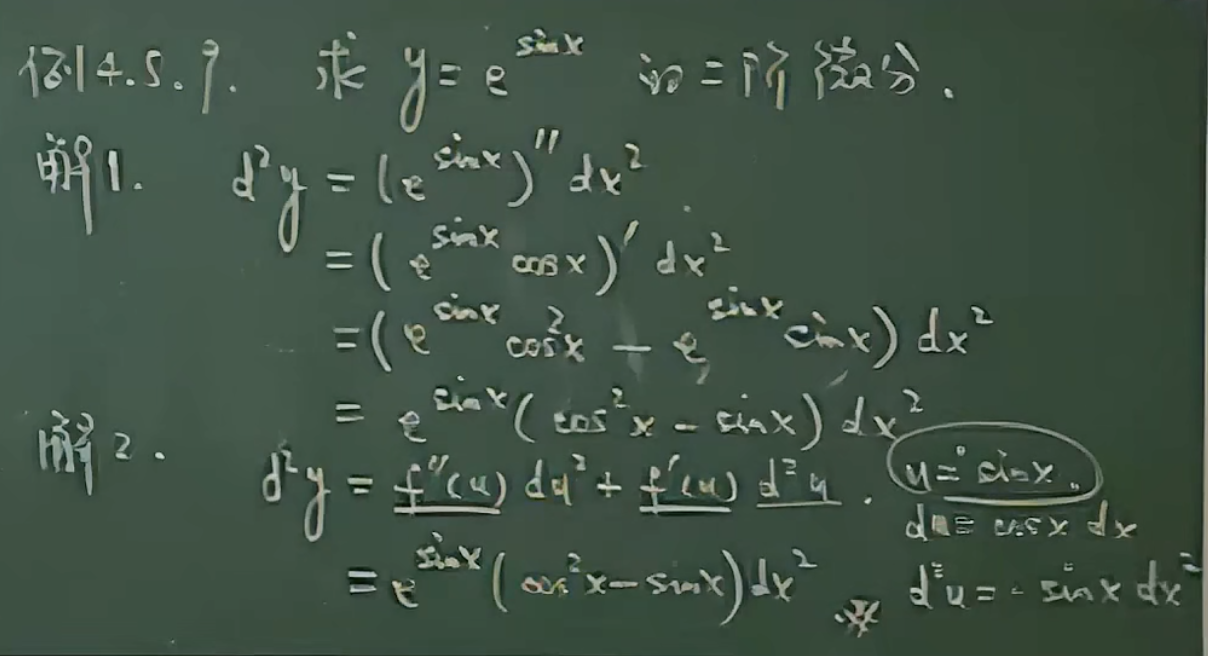 例4.5.9. 求 y = e^{sinx} 的二阶微分.
解1. d²y = (e^{sinx})'' dx²
= (e^{sinx} cosx)' dx²
= (e^{sinx} cos²x - e^{sinx} sinx) dx²
= e^{sinx} (cos²x - sinx) dx²
解2. d²y = f''(u) du² + f'(u) d²u.
= e^{sinx} (cos²x - sinx) dx²
u = sinx.
du = cosx dx
d²u = - sinx dx²